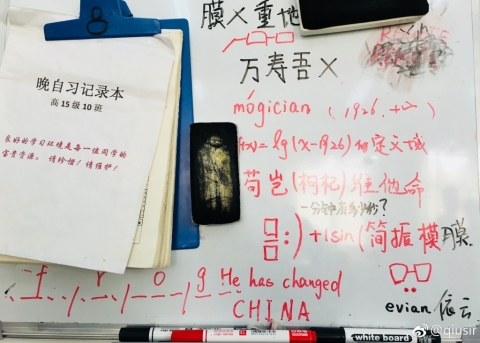 8
晚自习记录本
高15级10班
良好的学习环境是每一位同学的
宝贵资源。请珍惜！请维护！
膜X重地
万寿吾X
mógician (1926.
f(x)=lg(x-1926)的定义域
苟岂(枸杞)维他命
一分钟有多少秒？
:)+1sin(简振模膜
f r o g He has changed
CHINA
evian 依云
white board
@qiusir